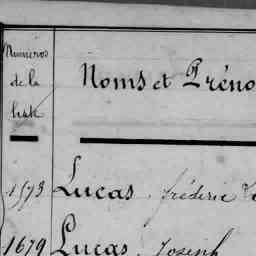 Numéros
de la
liste
Noms et Préno
1573 Lucas, fréderic
1679 Lucas, Joseph